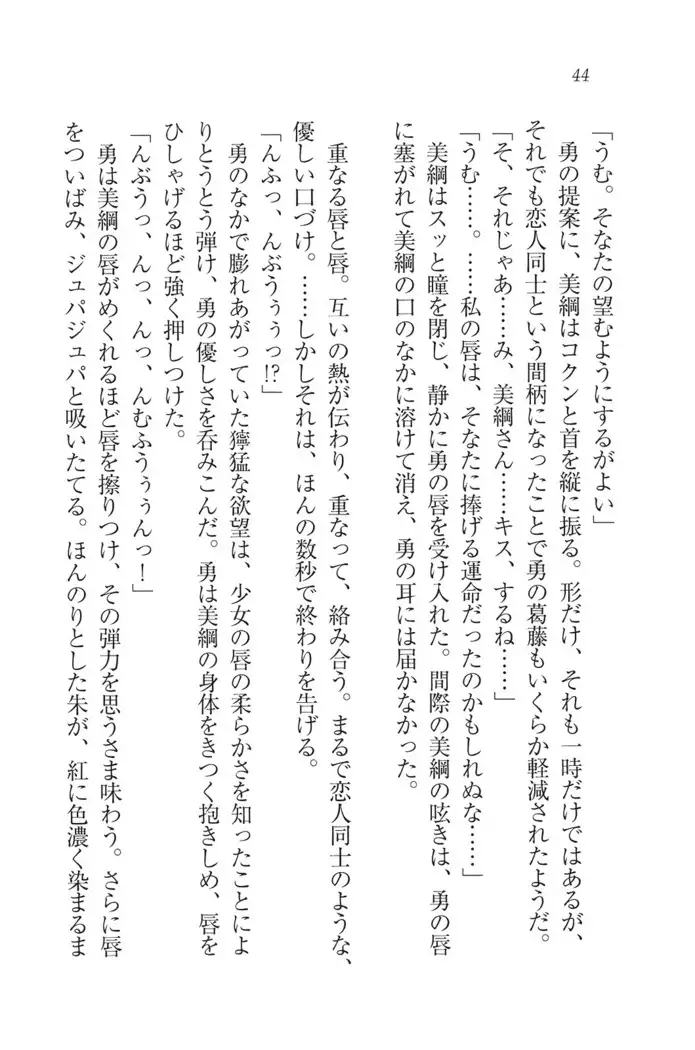 44
「うむ。そなたの望むようにするがよい」
　勇の提案に、美綱はコクンと首を縦に振る。形だけ、それも一時だけではあるが、
それでも恋人同士という間柄になったことで勇の葛藤もいくらか軽減されたようだ。
「そ、それじゃあ……み、美綱さん……キス、するね……」
「うむ……。……私の唇は、そなたに捧げる運命だったのかもしれぬな……」
　美綱はスッと瞳を閉じ、静かに勇の唇を受け入れた。間際の美綱の呟きは、勇の唇
に塞がれて美綱の口のなかに溶けて消え、勇の耳には届かなかった。
　重なる唇と唇。互いの熱が伝わり、重なって、絡み合う。まるで恋人同士のような、
優しい口づけ。……しかしそれは、ほんの数秒で終わりを告げる。
「んふっ、んぶうぅぅっ!?」
　勇のなかで膨れあがっていた獰猛な欲望は、少女の唇の柔らかさを知ったことによ
りとうとう弾け、勇の優しさを呑みこんだ。勇は美綱の身体をきつく抱きしめ、唇を
ひしゃげるほど強く押しつけた。
「んぶうっ、んっ、んっ、んむふうぅぅんっ！」
　勇は美綱の唇がめくれるほど唇を擦りつけ、その弾力を思うさま味わう。さらに唇
をついばみ、ジュパジュパと吸いたてる。ほんのりとした朱が、紅に色濃く染まるま